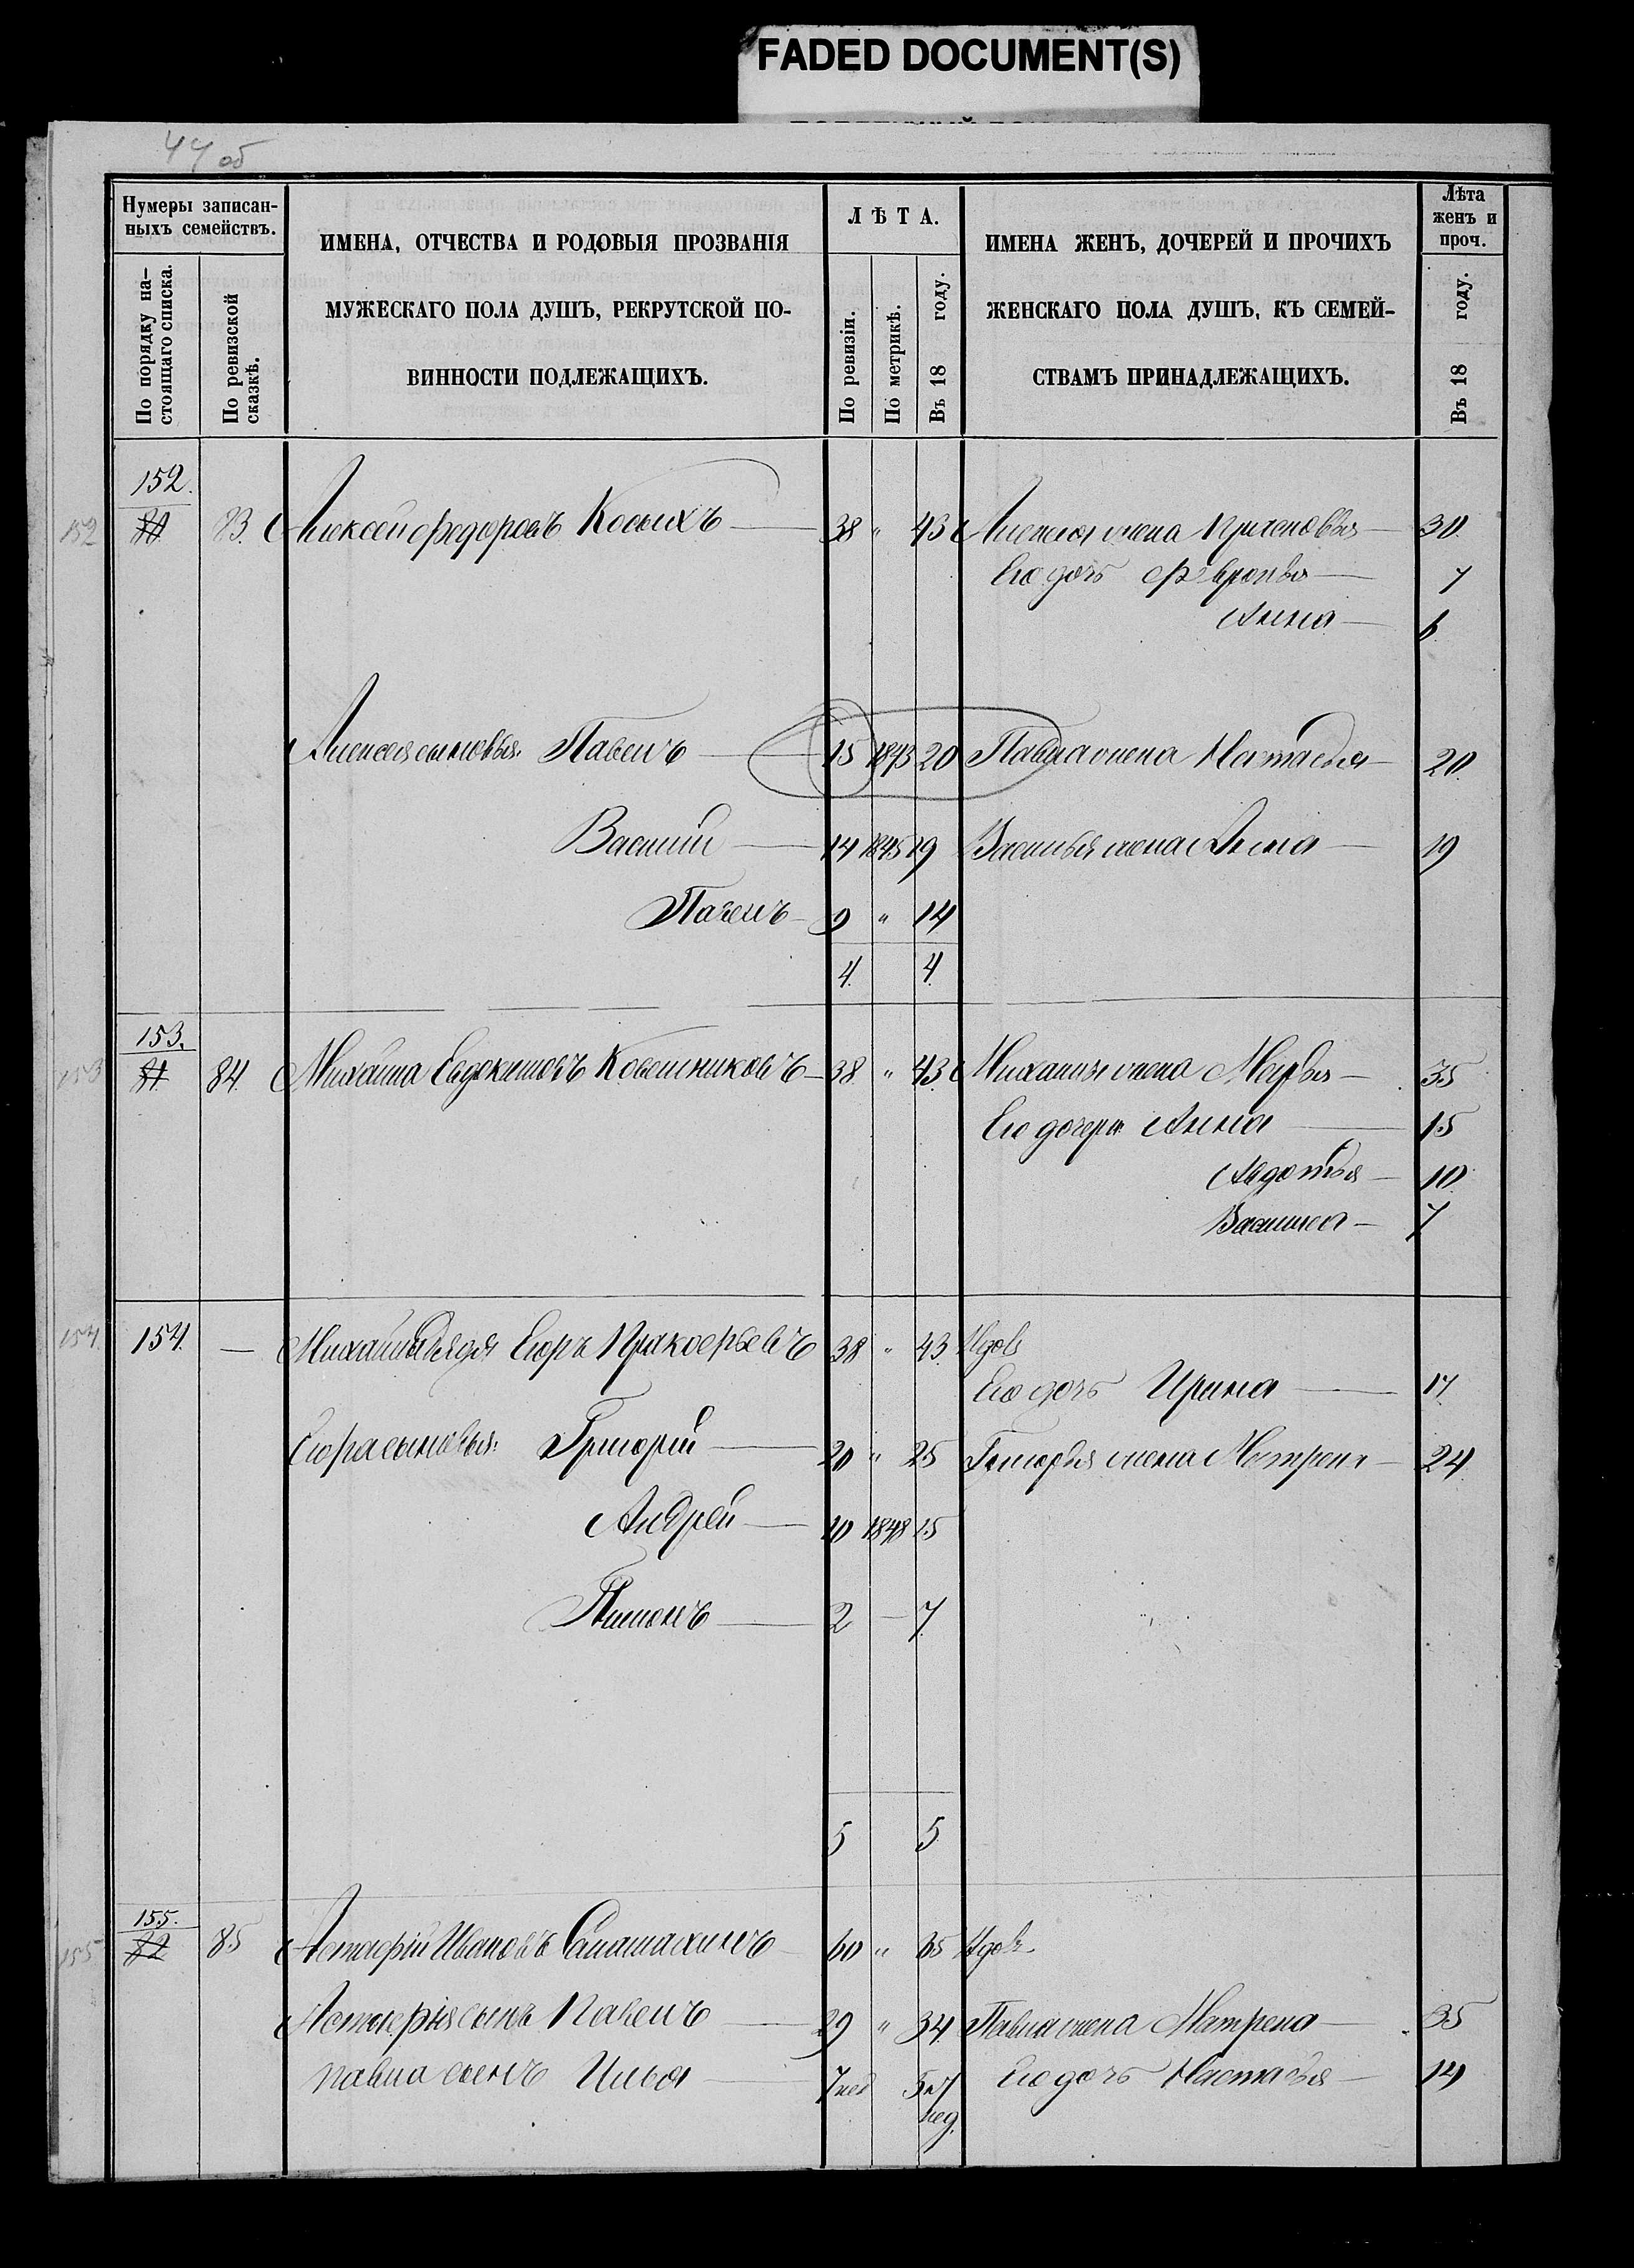 FADED DOCUMENT(S)
47 об
Нумеры записан-
ныхъ семействъ.
По порядку на-
стоящаго списка.
По ревизской
сказкѣ.
ИМЕНА, ОТЧЕСТВА И РОДОВЫЯ ПРОЗВАНІЯ
МУЖЕСКАГО ПОЛА ДУШЪ, РЕКРУТСКОЙ ПО-
ВИННОСТИ ПОДЛЕЖАЩИХЪ.
ЛѢТА.
По ревизіи.
По метрикѣ.
Въ 18 году.
ИМЕНА ЖЕНЪ, ДОЧЕРЕЙ И ПРОЧИХЪ
ЖЕНСКАГО ПОЛА ДУШЪ, КЪ СЕМЕЙ-
СТВАМЪ ПРИНАДЛЕЖАЩИХЪ.
Лѣта
женъ и
проч.
Въ 18 году.
152.
152 80 83. Алексей Федоровъ Косыхъ 38 " 43 Алексея жена 30.
Его дочь Февронья 7
Анна 6
Алексея сыновья: Павелъ 15 1843 20 Павла жена Настасья 20.
Василий 14 1845 19 Василья жена Анна 19
Павелъ 9 " 14
4. 4.
153.
153 81 84. Михайла Евдокимовъ 38 " 43 Михайлы жена Марья 35
Его дочери Анна 15
Авдотья 10
Василиса 7
154. 154. — Михайлы дядя Егоръ 38 " 43. Вдов
Его дочь Ирина 17
Егора сыновья: Григорий 20 " 25 Григорья жена Матрена 24
Андрей 10 1848 15
2 — 7
5 5
155.
155 82 85 Астафий Ивановъ 60 " 35 Вдов.
Астафия сынъ Павелъ 29 " 34 Павла жена Матрена 35
Павла сынъ Илья 7 нед 5 и 7 Его дочь Настасья 14
нед.